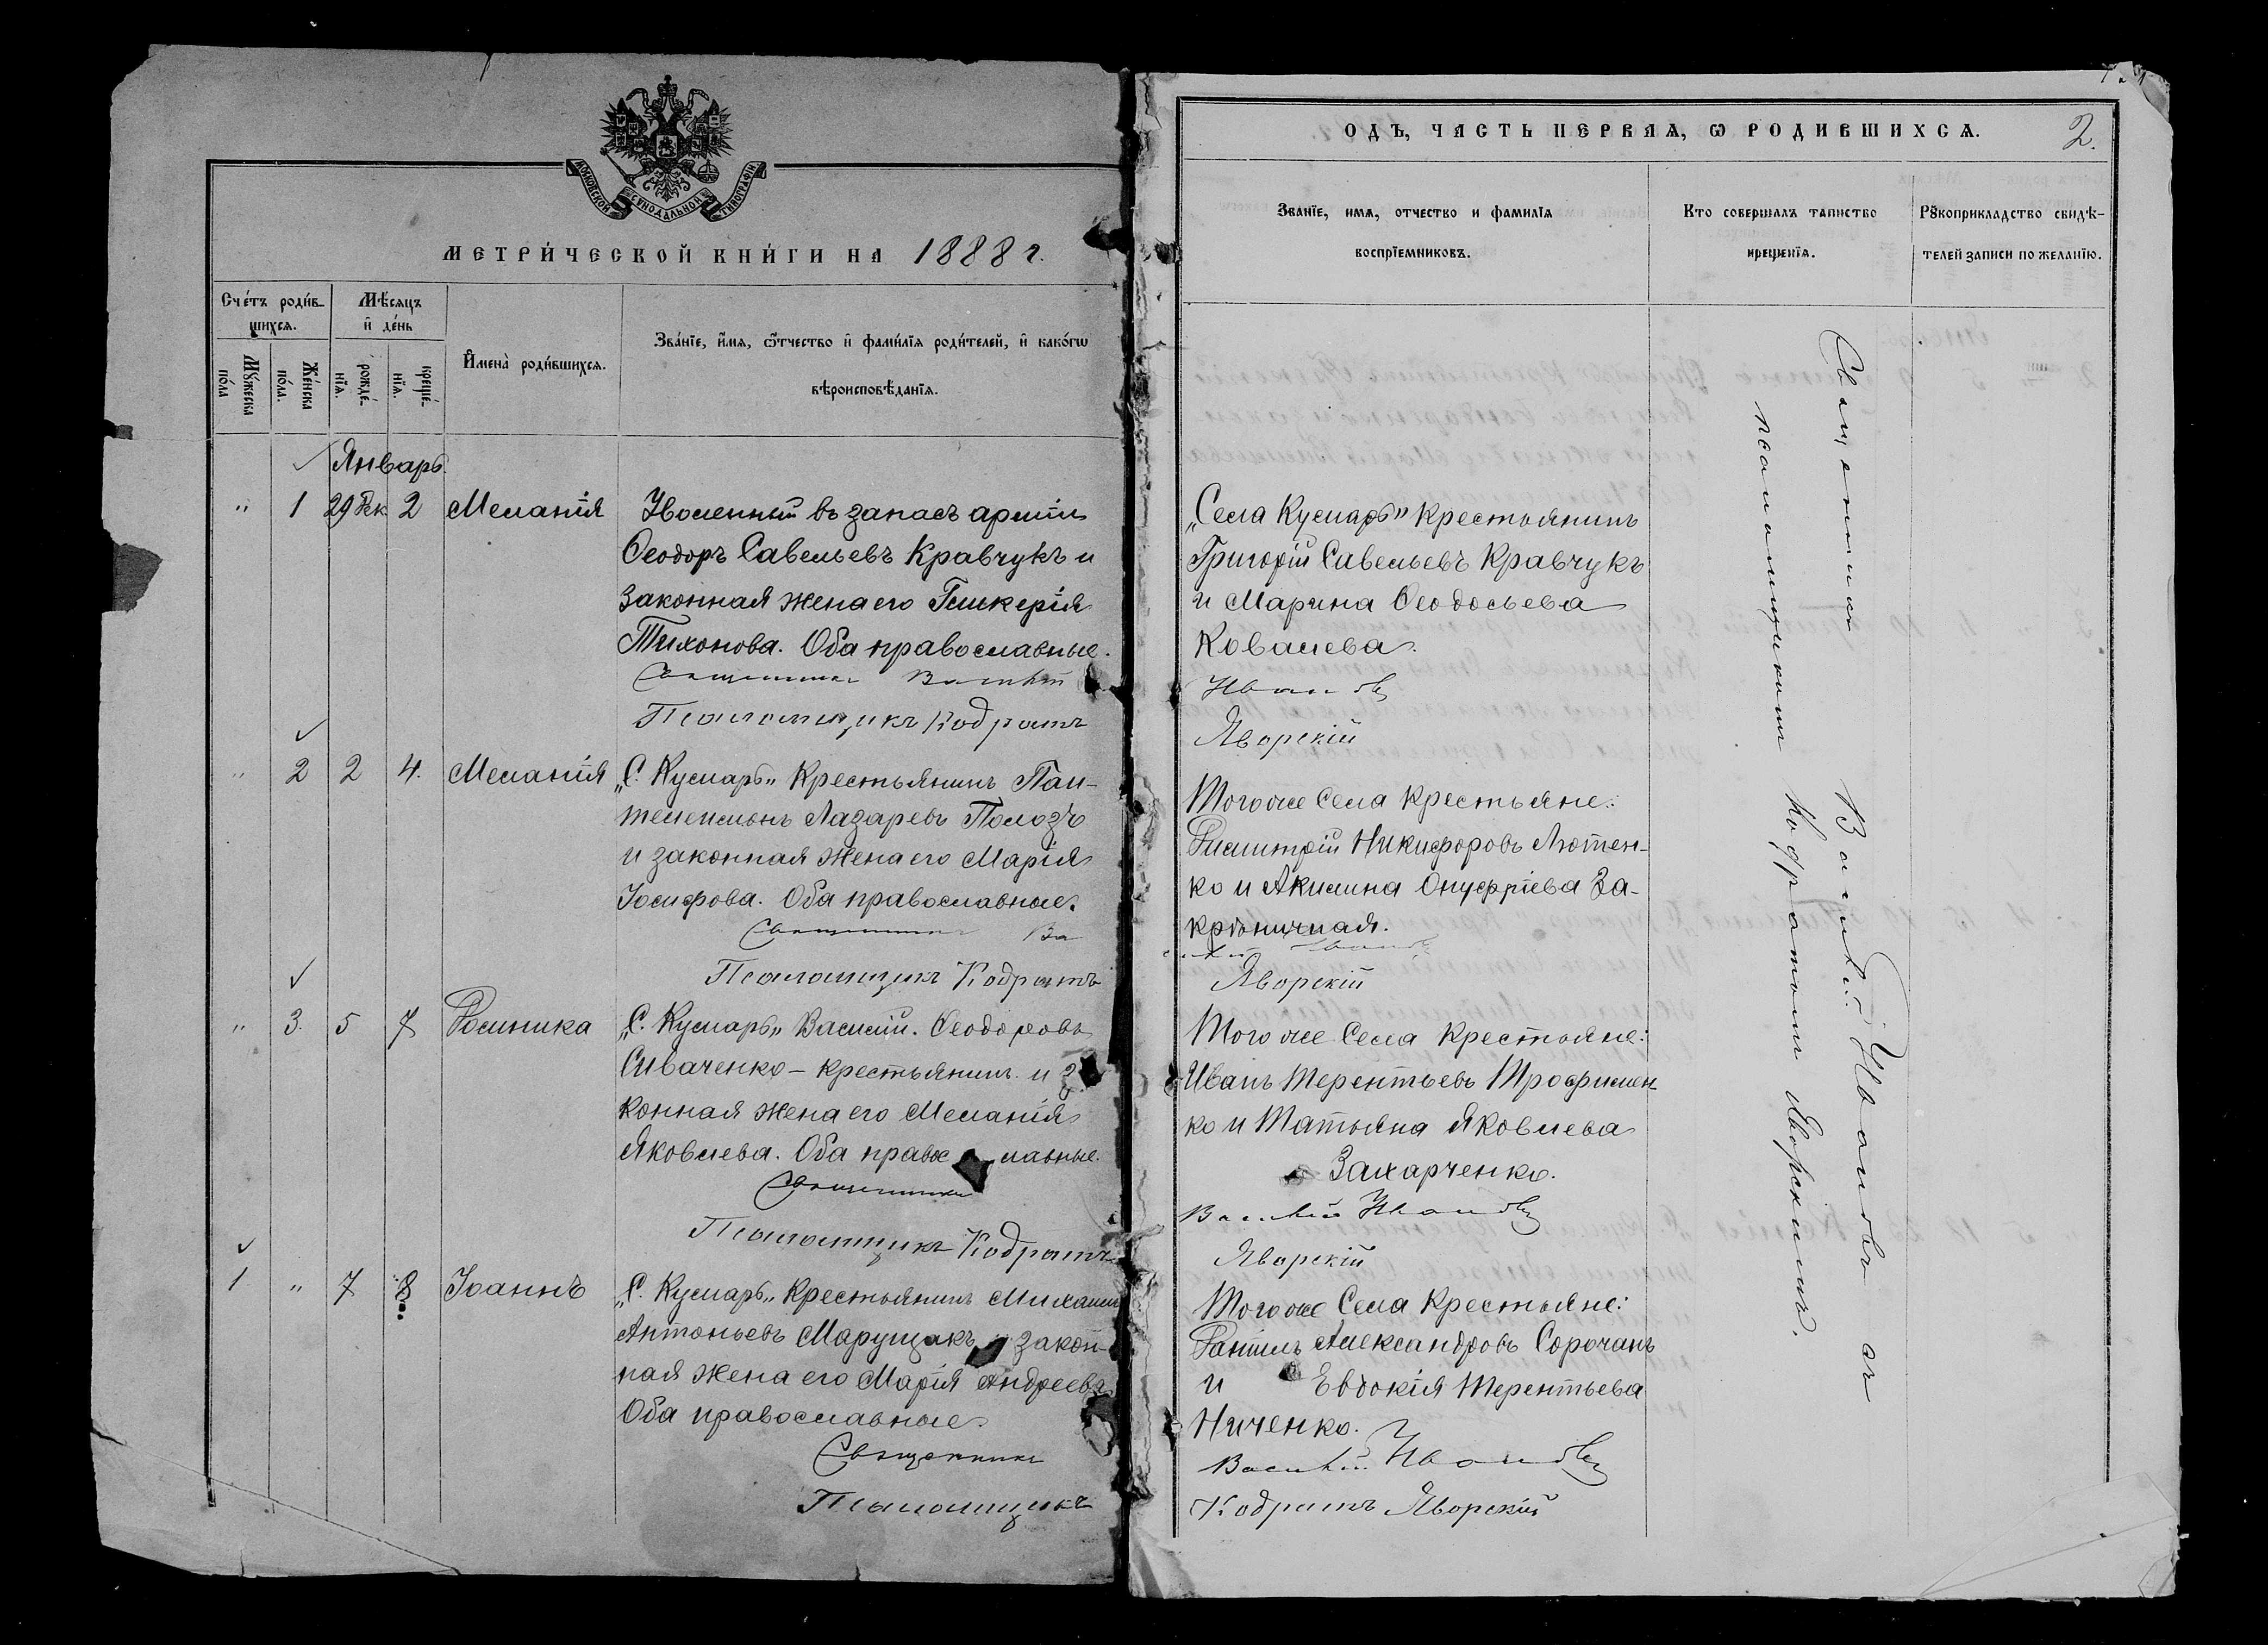 МОСКОВСКОЙ СѴНОДАЛЬНОЙ ТИПОГРАФІИ
МЕТРИ́ЧЕСКОЙ КНИ́ГИ НА 1888 г.
Сче́тъ роди́в-
шихся.
Мѣ́сяцъ
и҆ де́нь
Мꙋ́жеска
по́ла
Же́нска
по́ла.
рожде́-
нїя.
креще́-
нїя.
И҆мена̀ роди́вшихся.
Зва́нїе, и҆́мя, ѻ҆́тчество и҆ фами́лїя роди́телей, и҆ како́гѡ
вѣроисповѣ́данїя.
Январь.
" 1 29 Дек. 2 Меланія Уволенный въ запасъ арміи
Ѳеодоръ Савельевъ Кравчукъ и
законная жена его Гликерія
Тихонова. Оба православные.
Священникъ Василій
Псаломщикъ Кодратъ
" 2 2 4. Меланія „С. Куларь" крестьянинъ Пан-
телеимонъ Лазаревъ Полозъ
и законная жена его Марія
Іосифова. Оба православные.
Священникъ Ва
Псаломщикъ Кодратъ
" 3. 5 7 Домника „С. Куларь" Василій Ѳеодоровъ
Сиваченко - крестьянинъ и за
конная жена его Меланія
Яковлева. Оба православные.
Священникъ
Псаломщикъ Кодратъ
1 " 7 8 Іоаннъ „С. Куларь" крестьянинъ Михаилъ
Антоньевъ Марущакъ и закон-
ная жена его Марія Андреева
Оба православные.
Священникъ
Псаломщикъ
ОДЪ, ЧАСТЬ ПЕРВАЯ, Ѡ РОДИВШИХСЯ.
2.
Званїе, имя, отчество и фамилїя
воспрїемниковъ.
Кто совершалъ таинство
крещенїя.
Рꙋкоприкладство свидѣ-
телей записи по желанїю.
„Села Куларь" крестьянинъ
Григорій Савельевъ Кравчукъ
и Марина Ѳеодосьева
Ковалева.
Ивановъ
Яворскій
Того же села крестьяне:
Димитрій Никифоровъ Лютен-
ко и Акилина Онуфріева За-
кръничная.
силій Ивановъ
Яворскій
Того же села крестьяне:
Иванъ Терентьевъ Трофимен-
ко и Татьяна Яковлева
Захарченко.
Василій Ивановъ
Яворскій
Того же села крестьяне:
Даніилъ Александровъ Сорочанъ
и Евдокія Терентьева
Ниченко.
Василій Ивановъ
Кодратъ Яворскій
Священникъ Василій Ивановъ съ
псаломщикомъ Кодратомъ Яворскимъ.